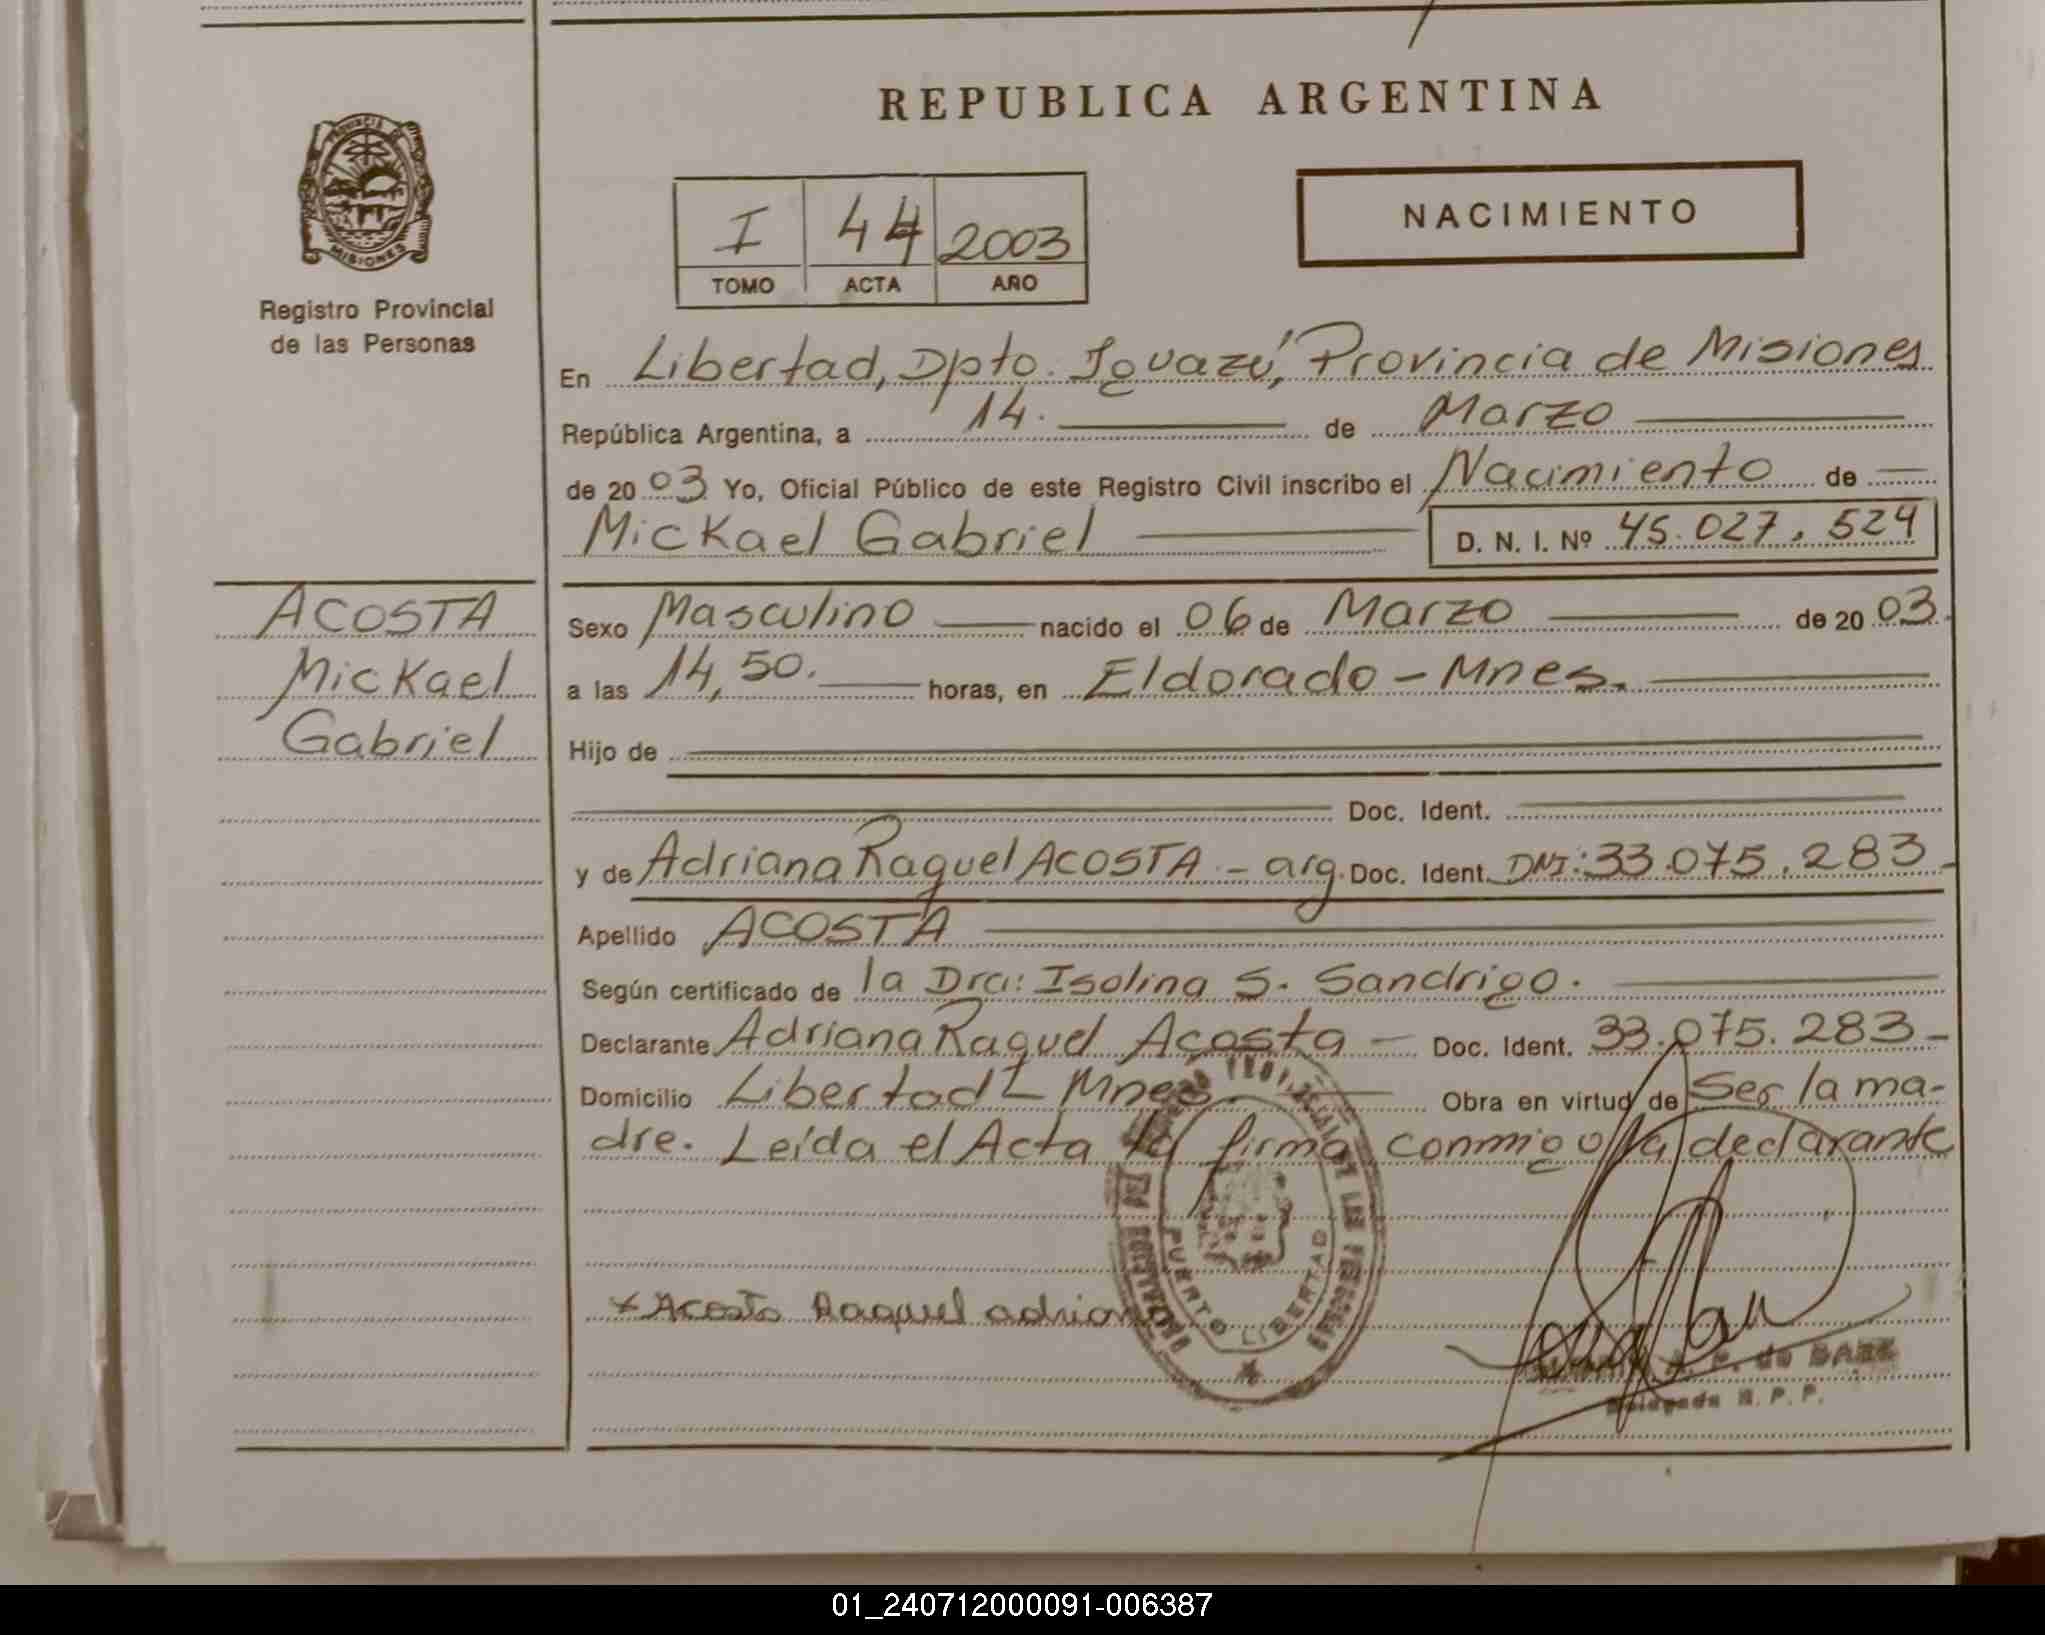 REPUBLICA ARGENTINA
PROVINCIA DE
MISIONES
Registro Provincial
de las Personas
I 44 2003
TOMO ACTA AÑO
NACIMIENTO
En Libertad, Dpto. Iguazú, Provincia de Misiones
República Argentina, a 14. de Marzo
de 2003 Yo, Oficial Público de este Registro Civil inscribo el Nacimiento de
Mickael Gabriel D. N. I. Nº 45.027.524
ACOSTA
Mickael
Gabriel
Sexo Masculino nacido el 06 de Marzo de 2003.
a las 14,50. horas, en Eldorado - Mnes.
Hijo de
Doc. Ident.
y de Adriana Raquel ACOSTA - arg. Doc. Ident. DNI: 33.075.283-
Apellido ACOSTA
Según certificado de la Dra: Isolina S. Sandrigo.
Declarante Adriana Raquel Acosta - Doc. Ident. 33.075.283-
Domicilio Libertad - Mnes. Obra en virtud de Ser la ma-
dre. Leída el Acta la firma conmigo la declarante
x Acosta Raquel
PUERTO LIBERTAD
de BAEZ
Delegada R. P. P.
01_240712000091-006387